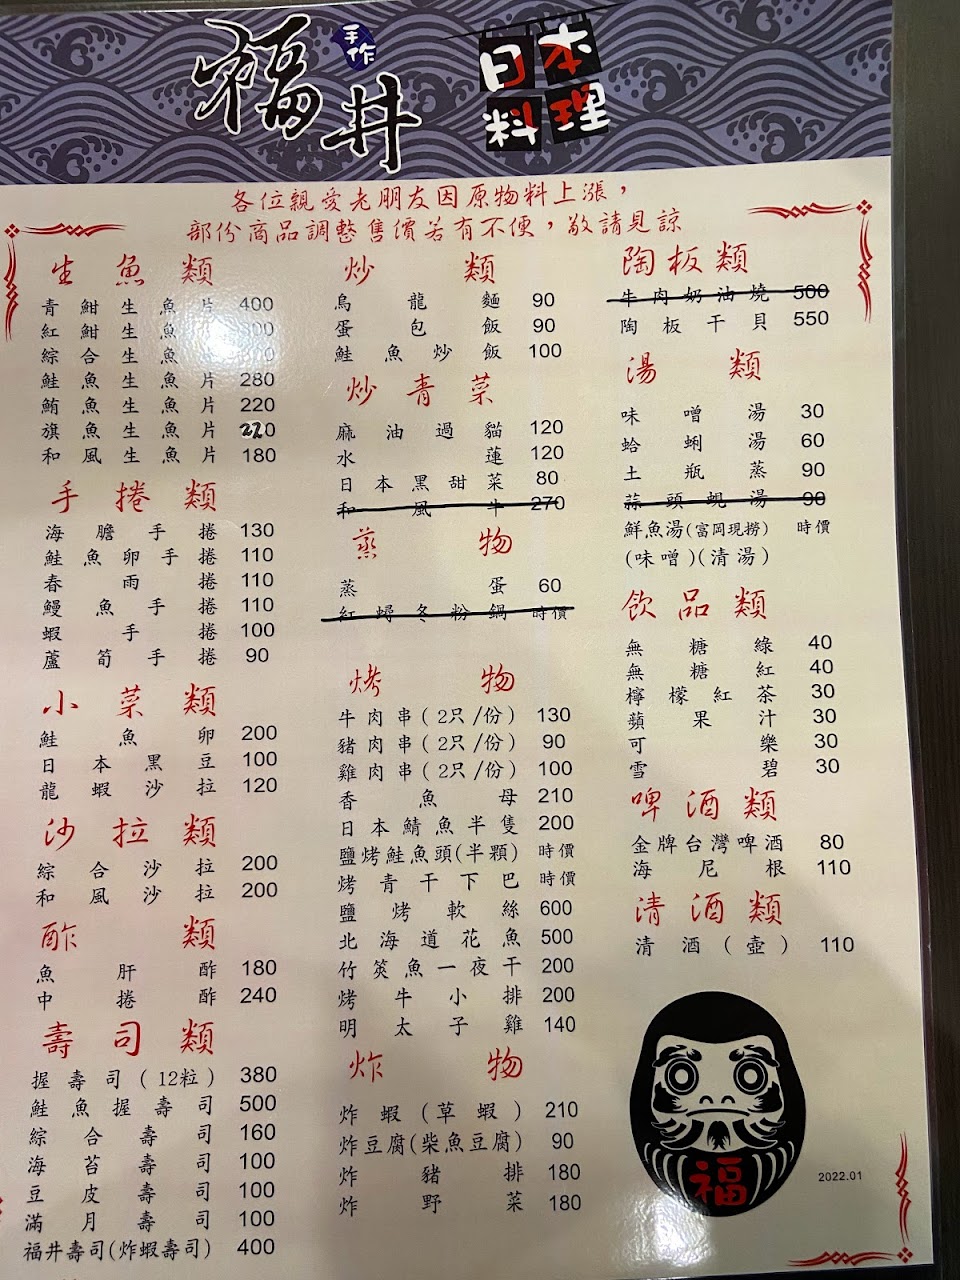 福井
手作
日本
料理
各位親愛老朋友因原物料上漲，
部份商品調整售價若有不便，敬請見諒
生魚類
青魽生魚片 400
紅魽生魚片
綜合生魚
鮭魚生魚片 280
鮪魚生魚片 220
旗魚生魚片 220
和風生魚片 180
手捲類
海膽手捲 130
鮭魚卵手捲 110
春雨捲 110
鰻魚手捲 110
蝦手捲 100
蘆筍手捲 90
小菜類
鮭魚卵 200
日本黑豆 100
龍蝦沙拉 120
沙拉類
綜合沙拉 200
和風沙拉 200
酢類
魚肝酢 180
中捲酢 240
壽司類
握壽司(12粒) 380
鮭魚握壽司 500
綜合壽司 160
海苔壽司 100
豆皮壽司 100
滿月壽司 100
福井壽司(炸蝦壽司) 400
炒類
烏龍麵 90
蛋包飯 90
鮭魚炒飯 100
炒青菜
麻油過貓 120
水蓮 120
日本黑甜菜 80
和風牛 270
蒸物
蒸蛋 60
紅蟳冬粉鍋 時價
烤物
牛肉串(2只/份) 130
豬肉串(2只/份) 90
雞肉串(2只/份) 100
香魚母 210
日本鯖魚半隻 200
鹽烤鮭魚頭(半顆) 時價
烤青干下巴 時價
鹽烤軟絲 600
北海道花魚 500
竹筴魚一夜干 200
烤牛小排 200
明太子雞 140
炸物
炸蝦(草蝦) 210
炸豆腐(柴魚豆腐) 90
炸豬排 180
炸野菜 180
陶板類
牛肉奶油燒 500
陶板干貝 550
湯類
味噌湯 30
蛤蜊湯 60
土瓶蒸 90
蒜頭蜆湯 90
鮮魚湯(富岡現撈) 時價
(味噌)(清湯)
飲品類
無糖綠 40
無糖紅 40
檸檬紅茶 30
蘋果汁 30
可樂 30
雪碧 30
啤酒類
金牌台灣啤酒 80
海尼根 110
清酒類
清酒(壺) 110
福
2022.01